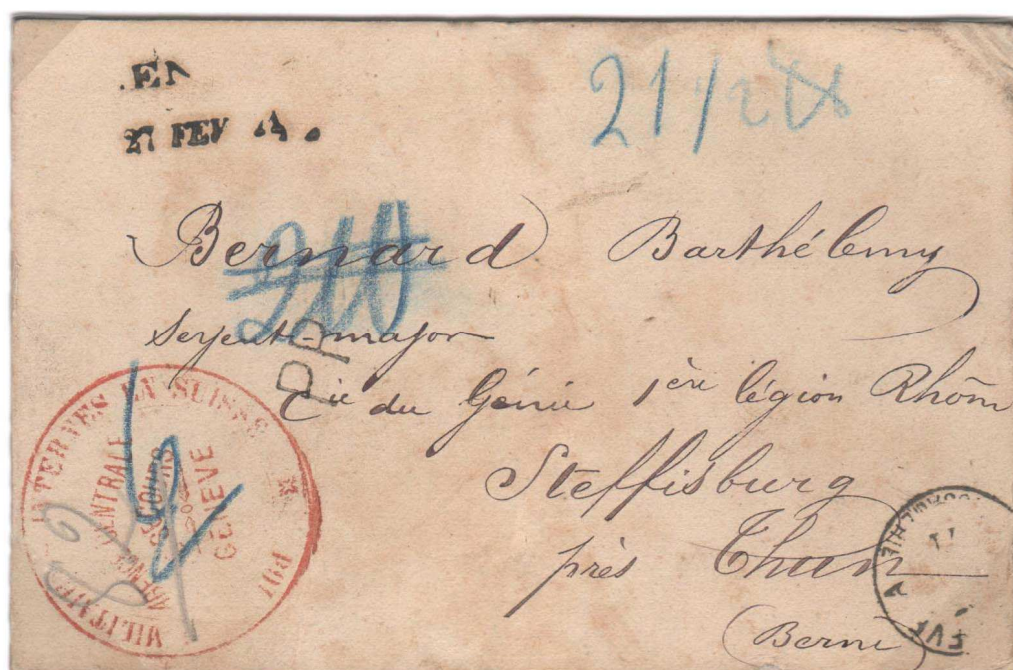 27 FEV
21
210
Bernard Barthélemy
Sergent-major
PP
Cie du Génie 1ère légion Rhône
Steffisburg
près Thun
(Berne)
MILITAIRES INTERNÉS EN SUISSE
AGENCE CENTRALE
SECOURS
GENÈVE